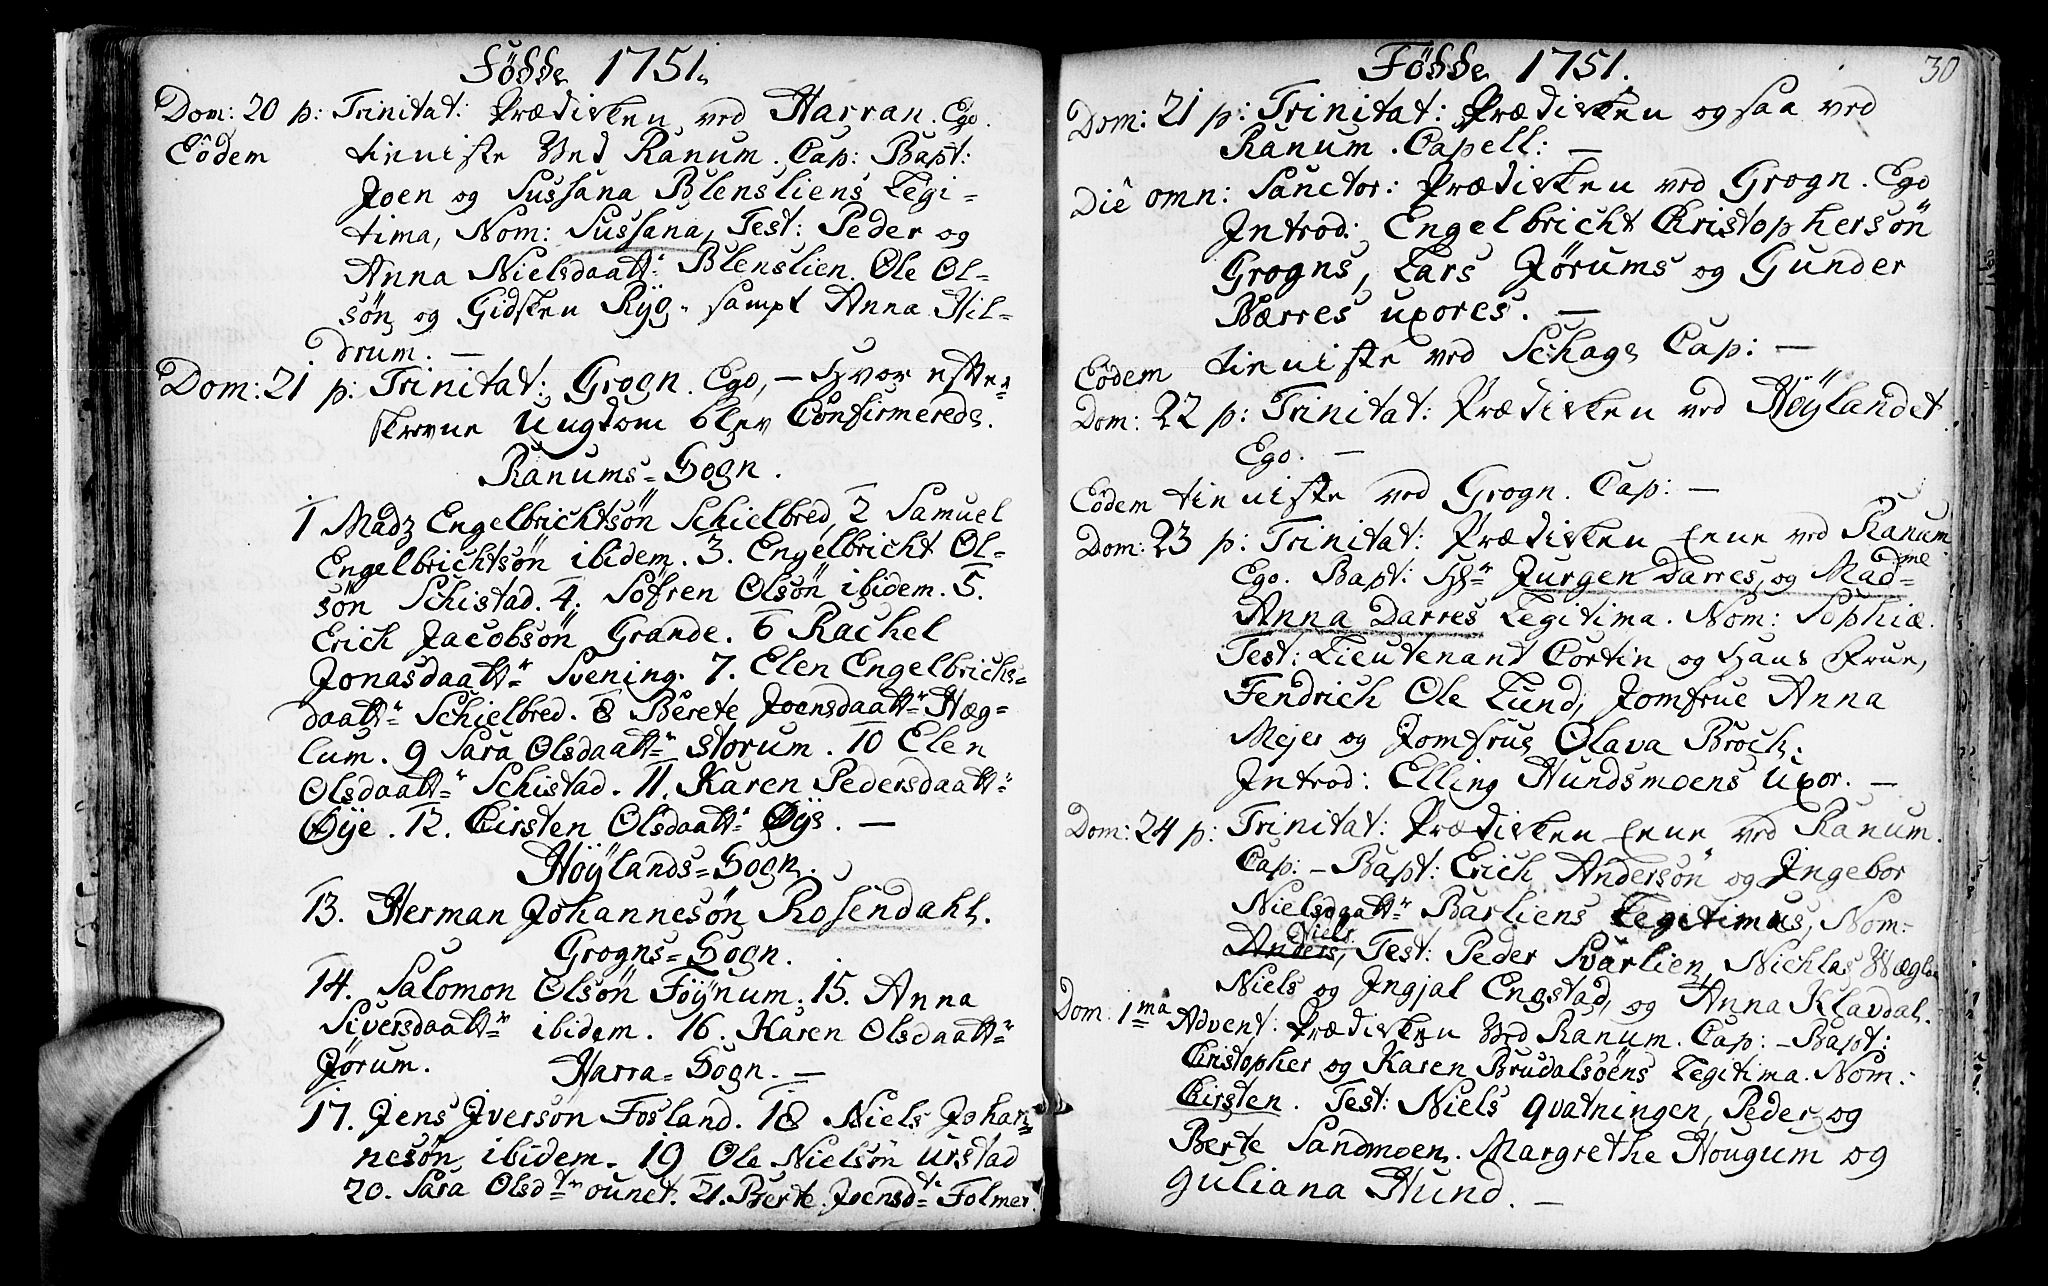 Födde 1751.
Dom: 20 p: Trinitat: Prædisken ved Harran. Ego.
Eôdem tieniste Ved Ranum. Cap: Bapt:
Joen og Sussana Blensliens Legi-
tima, Nom: Sussana, Test: Peder og
Anna Nielsdaattr Blenslien. Ole Ol-
sön og Gidsken Ryg. sampt Anna Hil-
drum. —
Dom: 21 p: Trinitat: Grogn. Ego, — hvor efter-
skrevne Ungdom blev Confirmerede.
Ranums-Sogn.
1 Madz Engelbrichtsön Schielbred, 2 Samuel
Engelbrichtsön ibidem. 3. Engelbricht Ol-
sön Schistad. 4. Söfren Olsön ibidem. 5.
Erich Jacobsön Grande. 6 Rachel
Jonasdaattr Svening. 7. Elen Engelbrichs-
daattr Schielbred. 8 Berete Joensdaattr Hæg-
lum. 9 Sara Olsdaattr Storum. 10 Elen
Olsdaattr Schistad. 11. Karen Pedersdaattr
Øye. 12. Kirsten Olsdaattr Øye. —
Höylands-Sogn.
13. Herman Johannesön Rosendahl.
Grogns-Sogn.
14. Salomon Olsön Föynum. 15. Anna
Siversdaattr ibidem. 16. Karen Olsdaattr
Jörum. Harra-Sogn. —
17. Jens Iversön Fosland. 18 Niels Johan-
nesön ibidem. 19 Ole Nielsön Urstad
20. Sara Olsdtr ounet. 21. Berte Joensdtr Folmer.
Födde 1751. 30
Dom: 21 p: Trinitat: Prædisken og saa ved
Ranum. Capell: —
Diê omn: Sanctor: Prædisken ved Grogn. Ego
Introd: Engelbricht Christophersön
Grogns, Lars Jörums og Gunder
Bærres uxores. —
Eôdem tieniste ved Schage Cap: —
Dom: 22 p: Trinitat: Prædisken ved Höylandet.
Ego. —
Eôdem tieniste ved Grogn. Cap: —
Dom: 23 p: Trinitat: Prædisken Eene ved Ranum
Ego. Bapt: Hr Jurgen Darres, og Mad-me
Anna Darres Legitima. Nom: Sophiæ.
Test: Lieutenant Cortin og Hans Frue,
Fendrich Ole Lund, Jomfrue Anna
Mejer og Jomfrue Olava Broch.
Introd: Elling Hundsmoens Uxor. —
Dom: 24 p: Trinitat: Prædisken Eene ved Ranum.
Cap: — Bapt: Erich Andersön og Ingebor
Nielsdaattr Barliens Legitimus, Nom:
Niels
Anders, Test: Peder Svarlien, Nichlas
Niels og Ingjal Engstad, og Anna Klavdal.
Dom: 1ma Advent: Prædisken Ved Ranum. Cap: — Bapt:
Christopher og Karen Brudalsöens Legitima. Nom:
Kirsten. Test: Niels Qvatningen, Peder og
Berte Sandmoen. Margrethe Hougum og
Guliana Hund. —